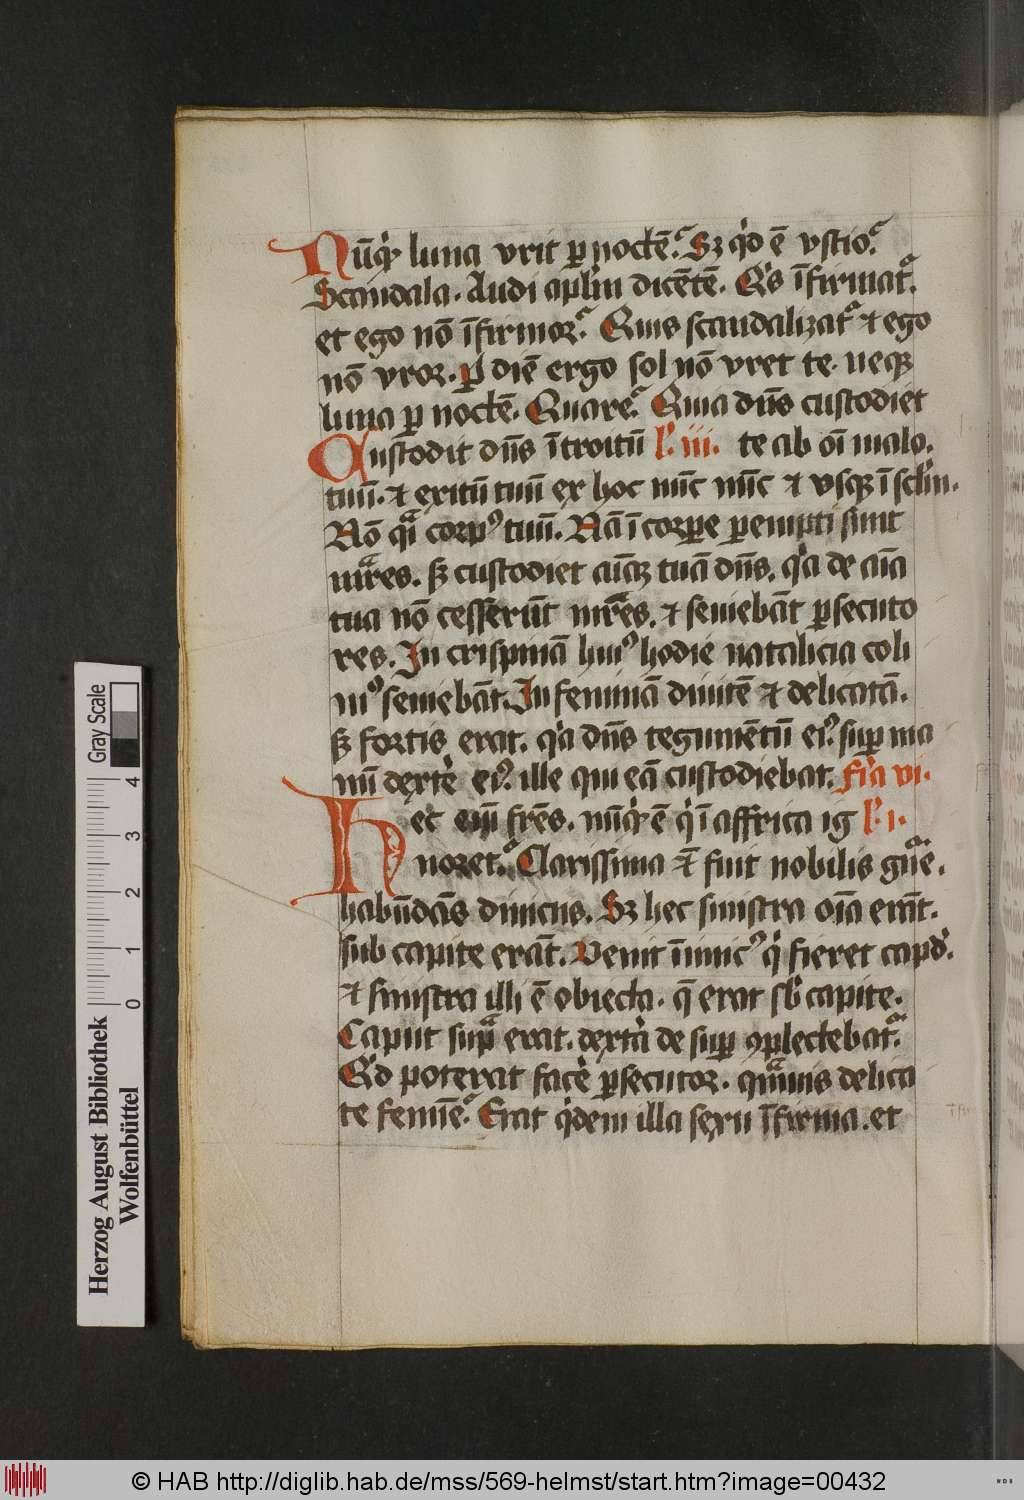 Nūqͥd luna vrit ꝑ noctē. Sꝫ qͥd ē vstio.
Scandala. Audi aplm̄ dicētē. Qͥs īfirmatͬ.
et ego nō īfirmor. Quis scandalizatͬ ⁊ ego
nō vror. ꝑ diē ergo sol nō vret te. neqꝫ
luna ꝑ noctē. Quare. Quia dn̄s custodiet
Custodit dn̄s ītroitū l̄. iii. te ab oī malo.
tuū. ⁊ exitū tuū ex hoc nūc nūc ⁊ vsqꝫ ī sclm̄.
Nō qͣ corpꝰ tuū. Nā ī corpe ꝑempti sunt
mr̄es. sꝫ custodiet aīaꝫ tuā dn̄s. qͥa de aīa
tua nō cesserūt mr̄es. ⁊ seuiebāt ꝑsecuto
res. In crispinā huiꝰ hodie natalicia coli
mꝰ seuiebāt. In feminā diuitē ⁊ delicatā.
sꝫ fortis erat. qͥa dn̄s tegumētū eiꝰ. suꝑ ma
nū dexte eiꝰ. ille qui eā custodiebat. fīa vi.
Hec eiū fr̄es. nūqͥd ē qͥ ī affrica ig l̄. i.
noret. Clarissima ē fuit nobilis gn̄e.
habūdās diuicus. Sꝫ hec sinistra oīa erāt.
sub capite erāt. Venit īimicꝰ qͥ fieret capd.
⁊ sinistra illi ē obiecta. q̄ erat sb̄ capite.
Caput supͣ erat. dextͣa de suꝑ ꝯplectebatͬ.
Qͥd poterat facē ꝑsecutor. qͣmuis delica
te femīē. Erat qͥdem illa sexu īfirma. et
Herzog August Bibliothek
Wolfenbüttel
0 1 2 3 4
Gray Scale
© HAB http://diglib.hab.de/mss/569-helmst/start.htm?image=00432